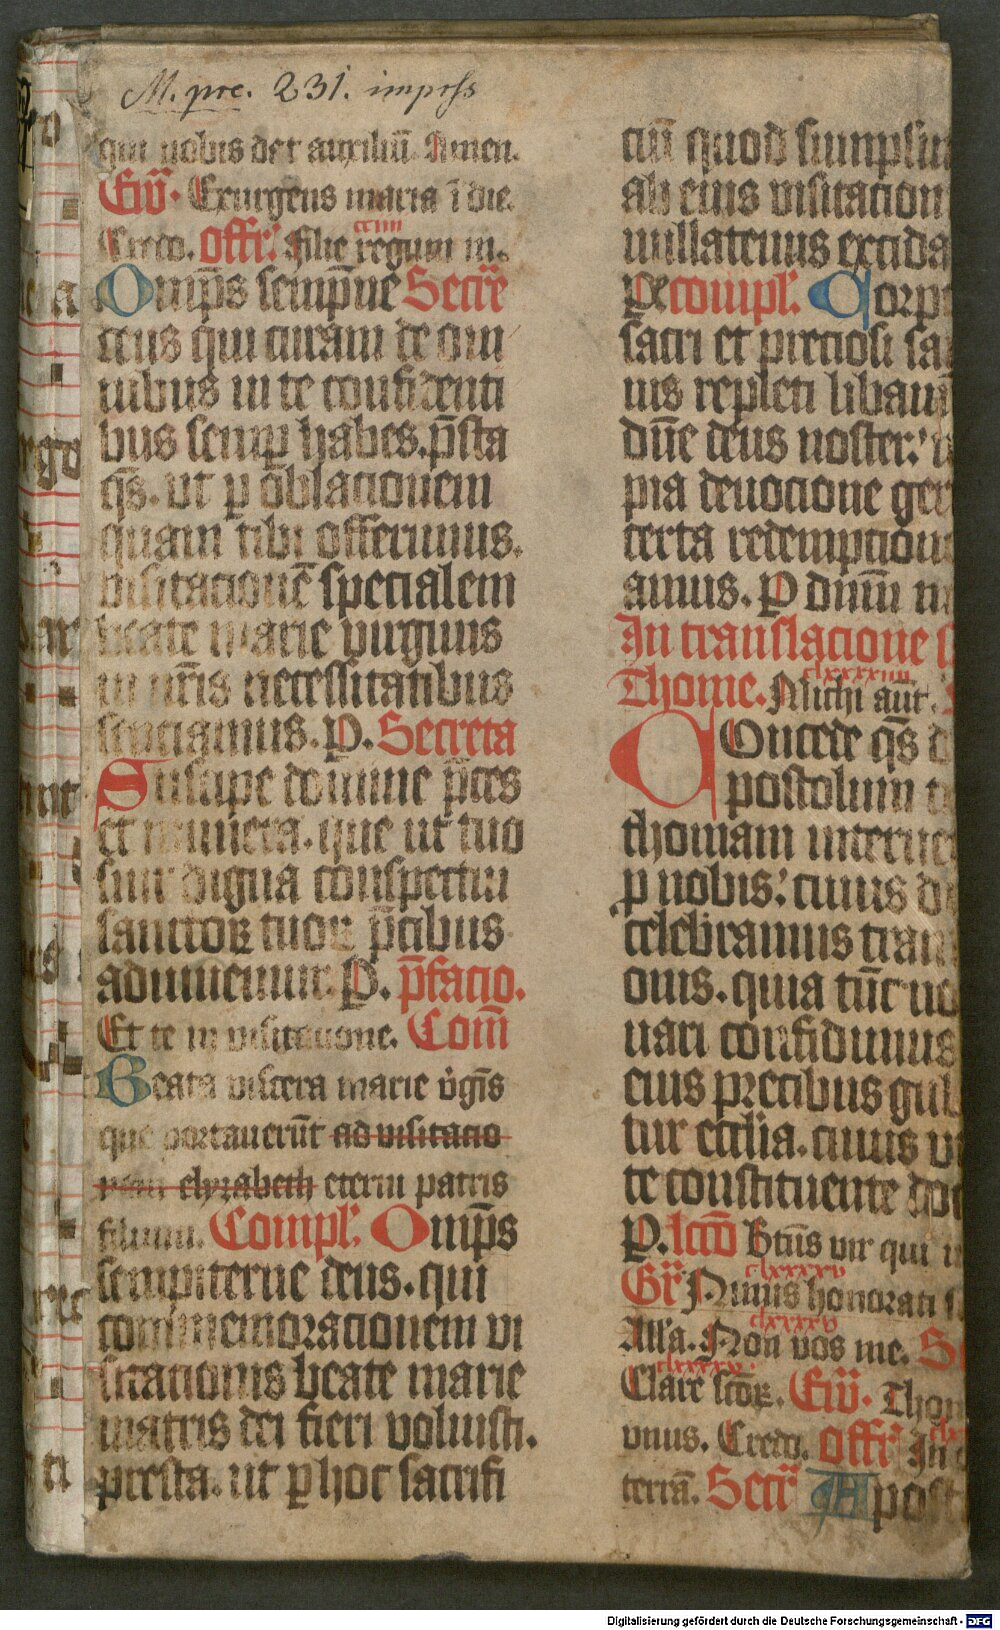 M. pre. 231. impress
qui nobis det auxiliū. Amen.
Ew̄. Exurgens maria ī die.
Credo. Offr̄. Filie regum in.
ccuii
Omp̄s semp̄ne Secr̄e
deus qui curam de om
nibus in te confidenti
bus semp habes. p̄sta
qs̄. ut p oblacionem
quam tibi offerimus.
visitacionē specialem
beate marie virginis
in nr̄is necessitatibus
senciamus. P. Secreta
Suscipe domine p̄ces
et munera. que ut tuo
sint digna conspectui
sanctoꝝ tuoꝝ p̄cibus
adiuuemur. P. p̄facio.
Et te in visitacione. Com̄
Beata viscera marie v̇gīs
que portauerūt ad visitacio
nem elyzabeth eterni patris
filium. Compl. Omp̄s
sempiterne deus. qui
commemoracionem vi
sitacionis beate marie
matris dei fieri voluisti.
presta. ut p hoc sacrifi
ciū quod sumpsim
ab eius visitacion
nullatenus excida
Pr compl. Corpo
sacri et preciosi sa
nis repleti libami
dn̄e deus noster:
pia deuocione ger
certa redempcione
amus. P dnm̄
In translacione s
clxxxxiiii
Thome. Michi aut.
Concede qs̄ d
postolum t
thomam interue
p nobis: cuius d
celebramus tran
onis. quia tūc no
uari confidimus
eius precibus gub
tur eccl̄ia. cuius v
te constituente do
P. lcc̄o Btūs vir qui
clxxxxv
Gr̄. Nimis honorati s
clxxxxv
All'a. Non vos me. S
clxxxxv
Clare sc̄oꝝ. Ew̄. Thom
vnus. Credo. Offr̄ In
terrā. Secr̄ Apost
Digitalisierung gefördert durch die Deutsche Forschungsgemeinschaft - DFG